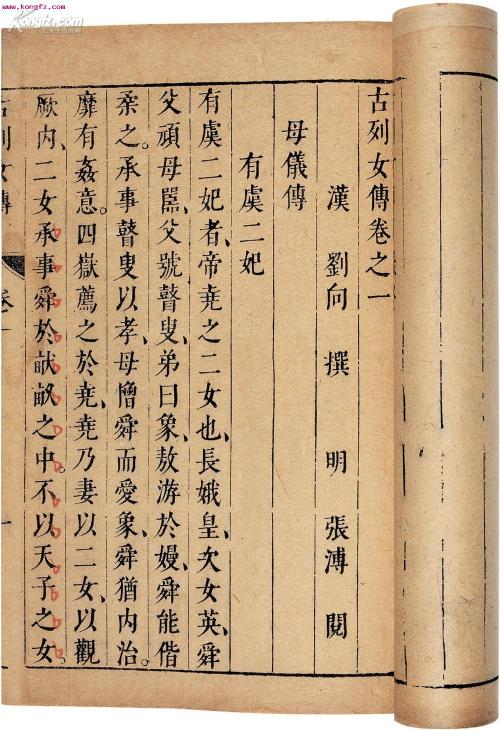 www.kongfz.com
古列女傳卷之一
漢 劉向 撰 明 張溥 閱
母儀傳
有虞二妃
有虞二妃者、帝堯之二女也、長娥皇、次女英、舜
父頑母嚚、父號瞽叟、弟曰象、敖游於嫚、舜能偕
柔之。承事瞽叟以孝、母憎舜而愛象、舜猶內治。
靡有姦意。四嶽薦之於堯、堯乃妻以二女、以觀
厥內、二女承事舜於畎畝之中。不以天子之女。
古列女傳
卷一
一